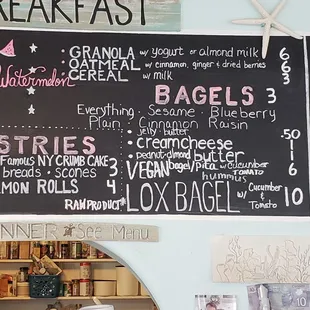 BREAKFAST
GRANOLA w/ yogurt or almond milk 6
OATMEAL w/ cinnamon, ginger & dried berries 6
CEREAL w/ milk 3
Watermelon
BAGELS 3
Everything · Sesame · Blueberry
Plain · Cinnamon Raisin
jelly · butter .50
creamcheese 1
peanut-almond butter 1
VEGAN bagel/pita w/ cucumber tomato hummus 6
LOX BAGEL w/ Cucumber & Tomato 10
STRIES
Famous NY CRUMB CAKE
breads · scones 3
MON ROLLS 4
RAW PRODUCT
NNER See Menu
10